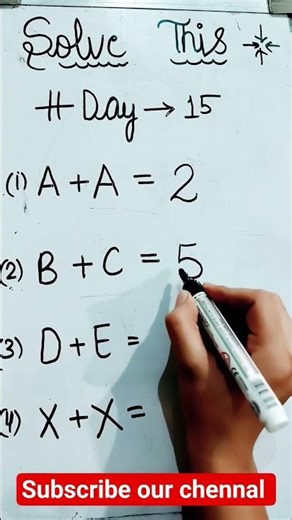 Solve This
# Day → 15
(1) A + A = 2
(2) B + C = 5
(3) D + E =
(4) X + X =
Subscribe our chennal